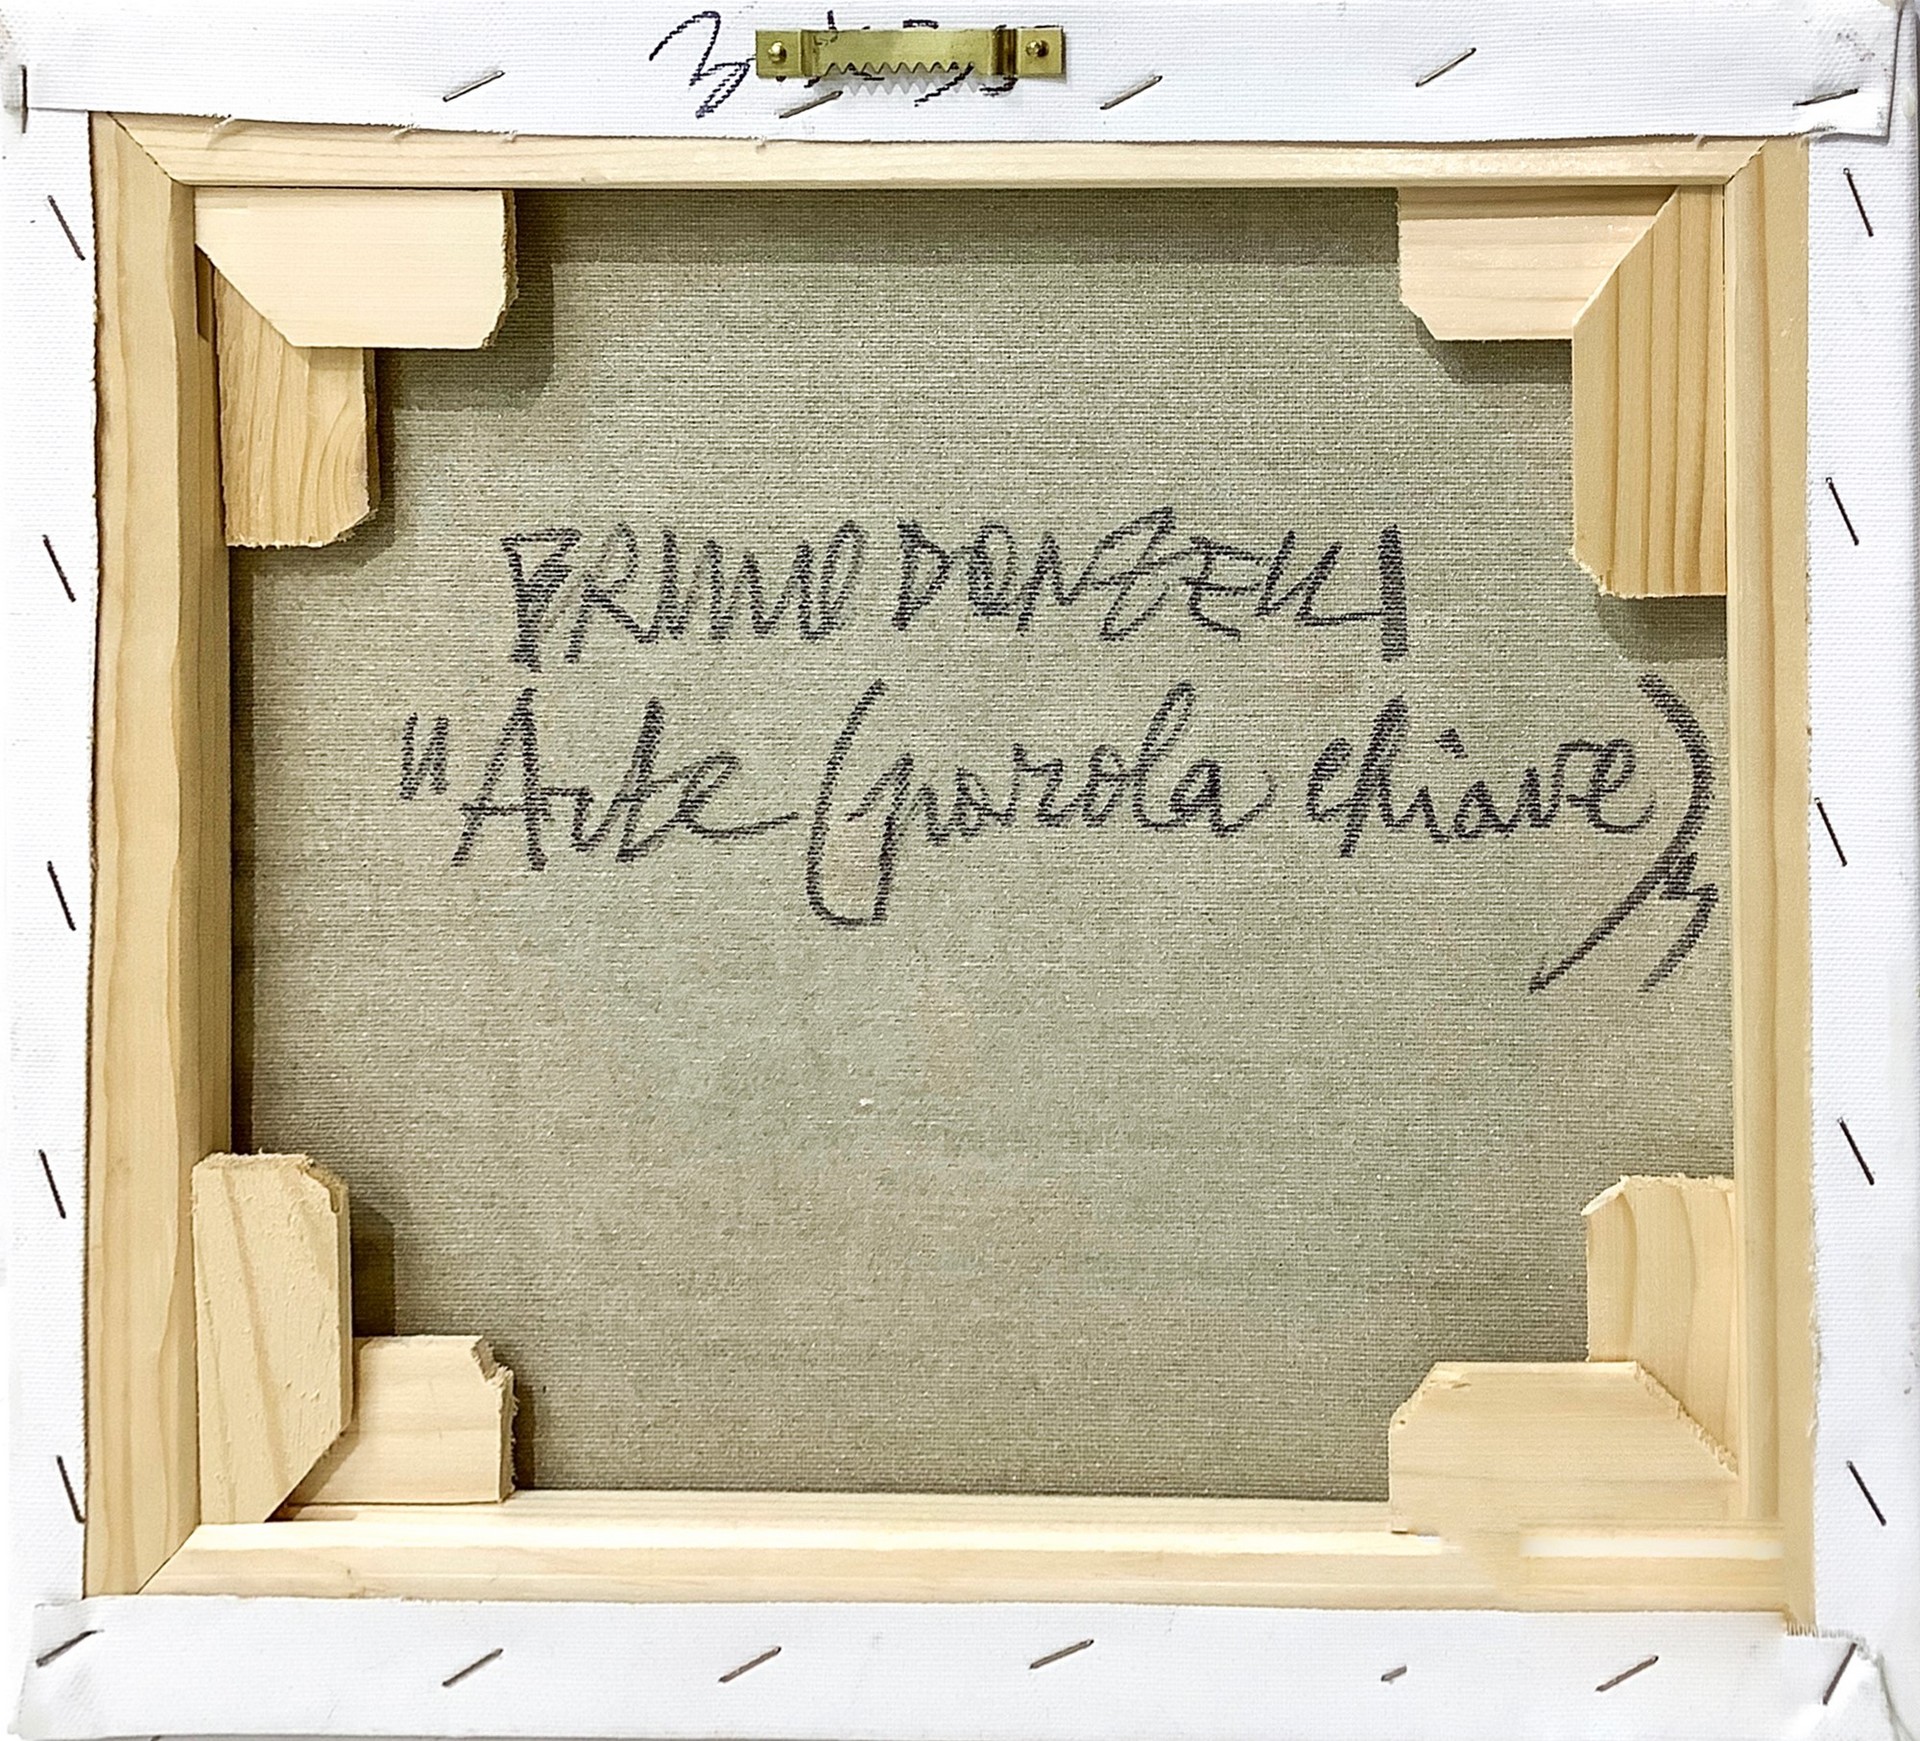 BRUNO DONZELLI
"Arte (parola chiave)"